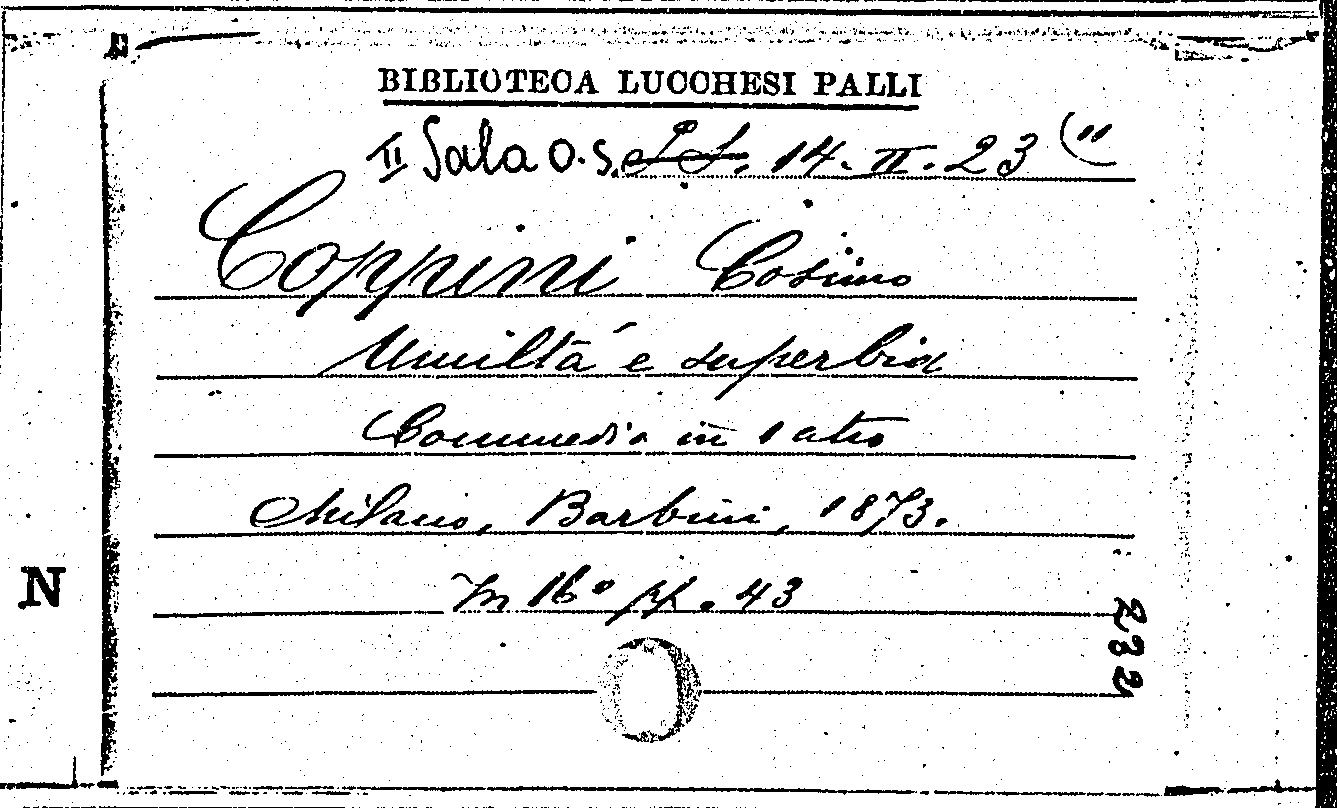 BIBLIOTECA LUCCHESI PALLI
II Sala O.S. 14. II. 23 ("
Coppini Cosimo
Umiltà e superbia
Commedia in 1 atto
Milano, Barbini, 1873.
In 16° pp. 43
N
232